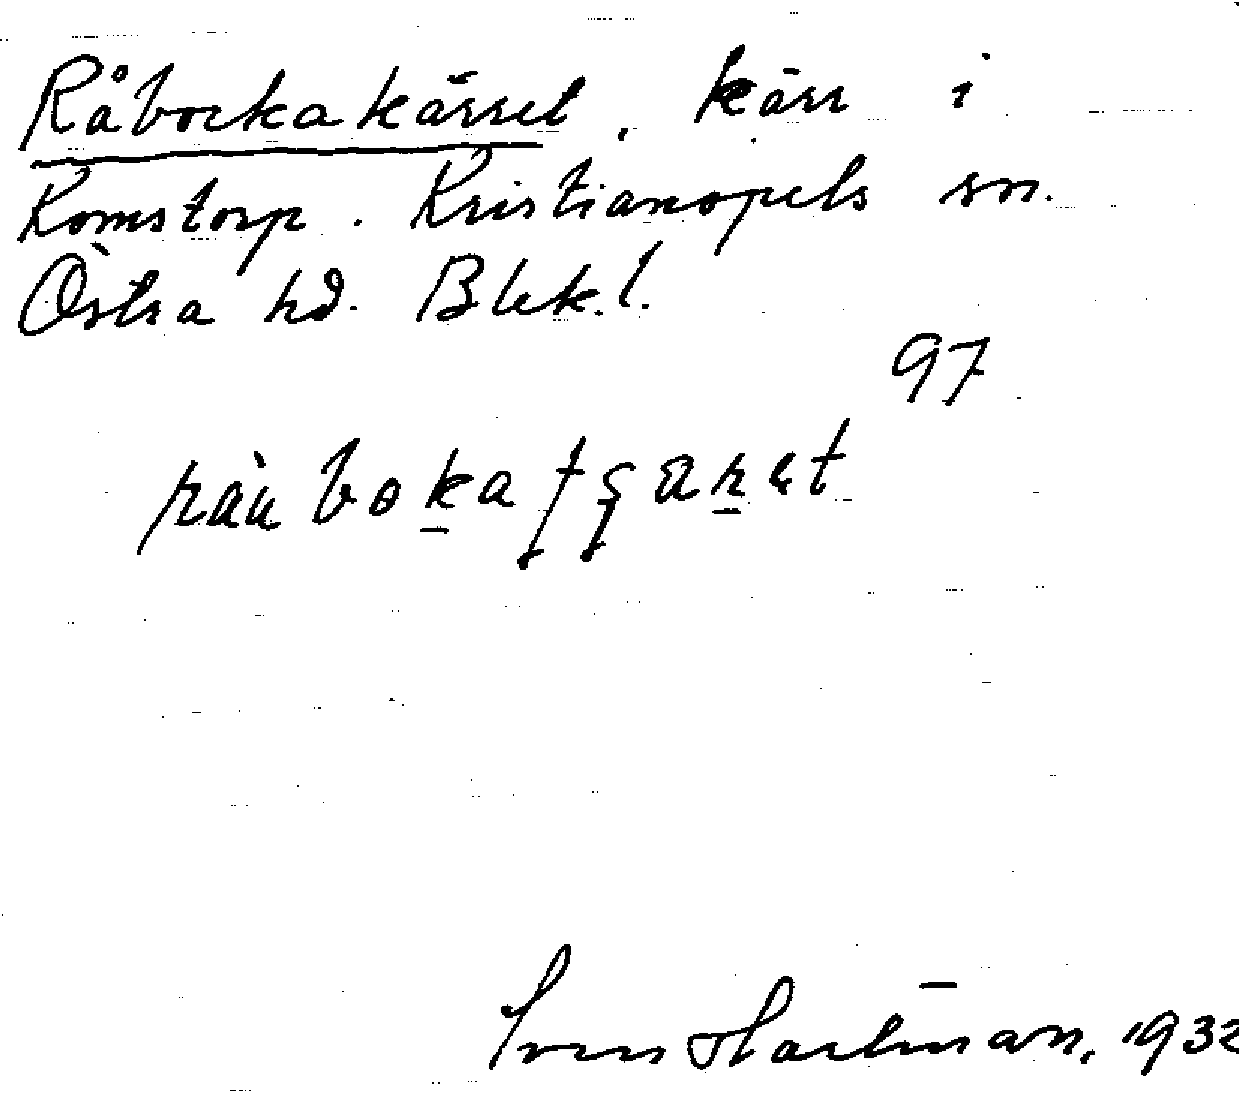 Råbockakärret, kärr i
Komstorp. Kristianopels sn.
Östra hd. Blek.l.
97
Sven Hartman, 1932